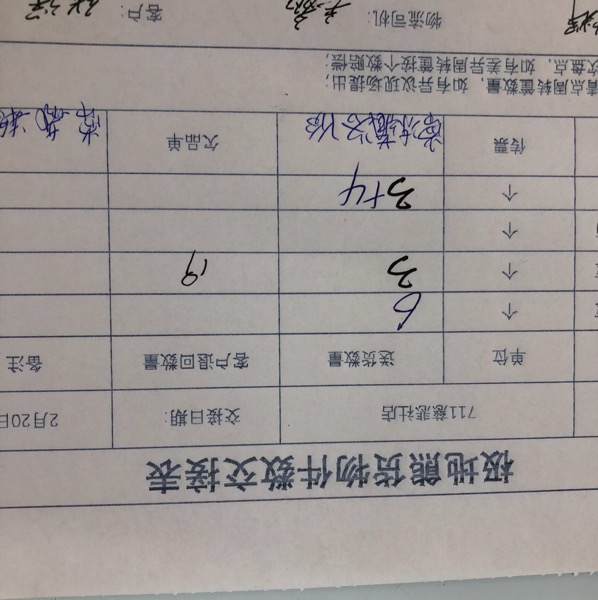 极地熊货物件数交接表
711慈悲社店 交接日期: 2月20日
单位 送货数量 客户退回数量 备注
个 6
个 3 19
个
个 3+4
传票 欠品单
清点周转筐数量,如有异议现场提出;
次盘点,如有差异周转筐按个数赔偿;
物流司机: 客户: